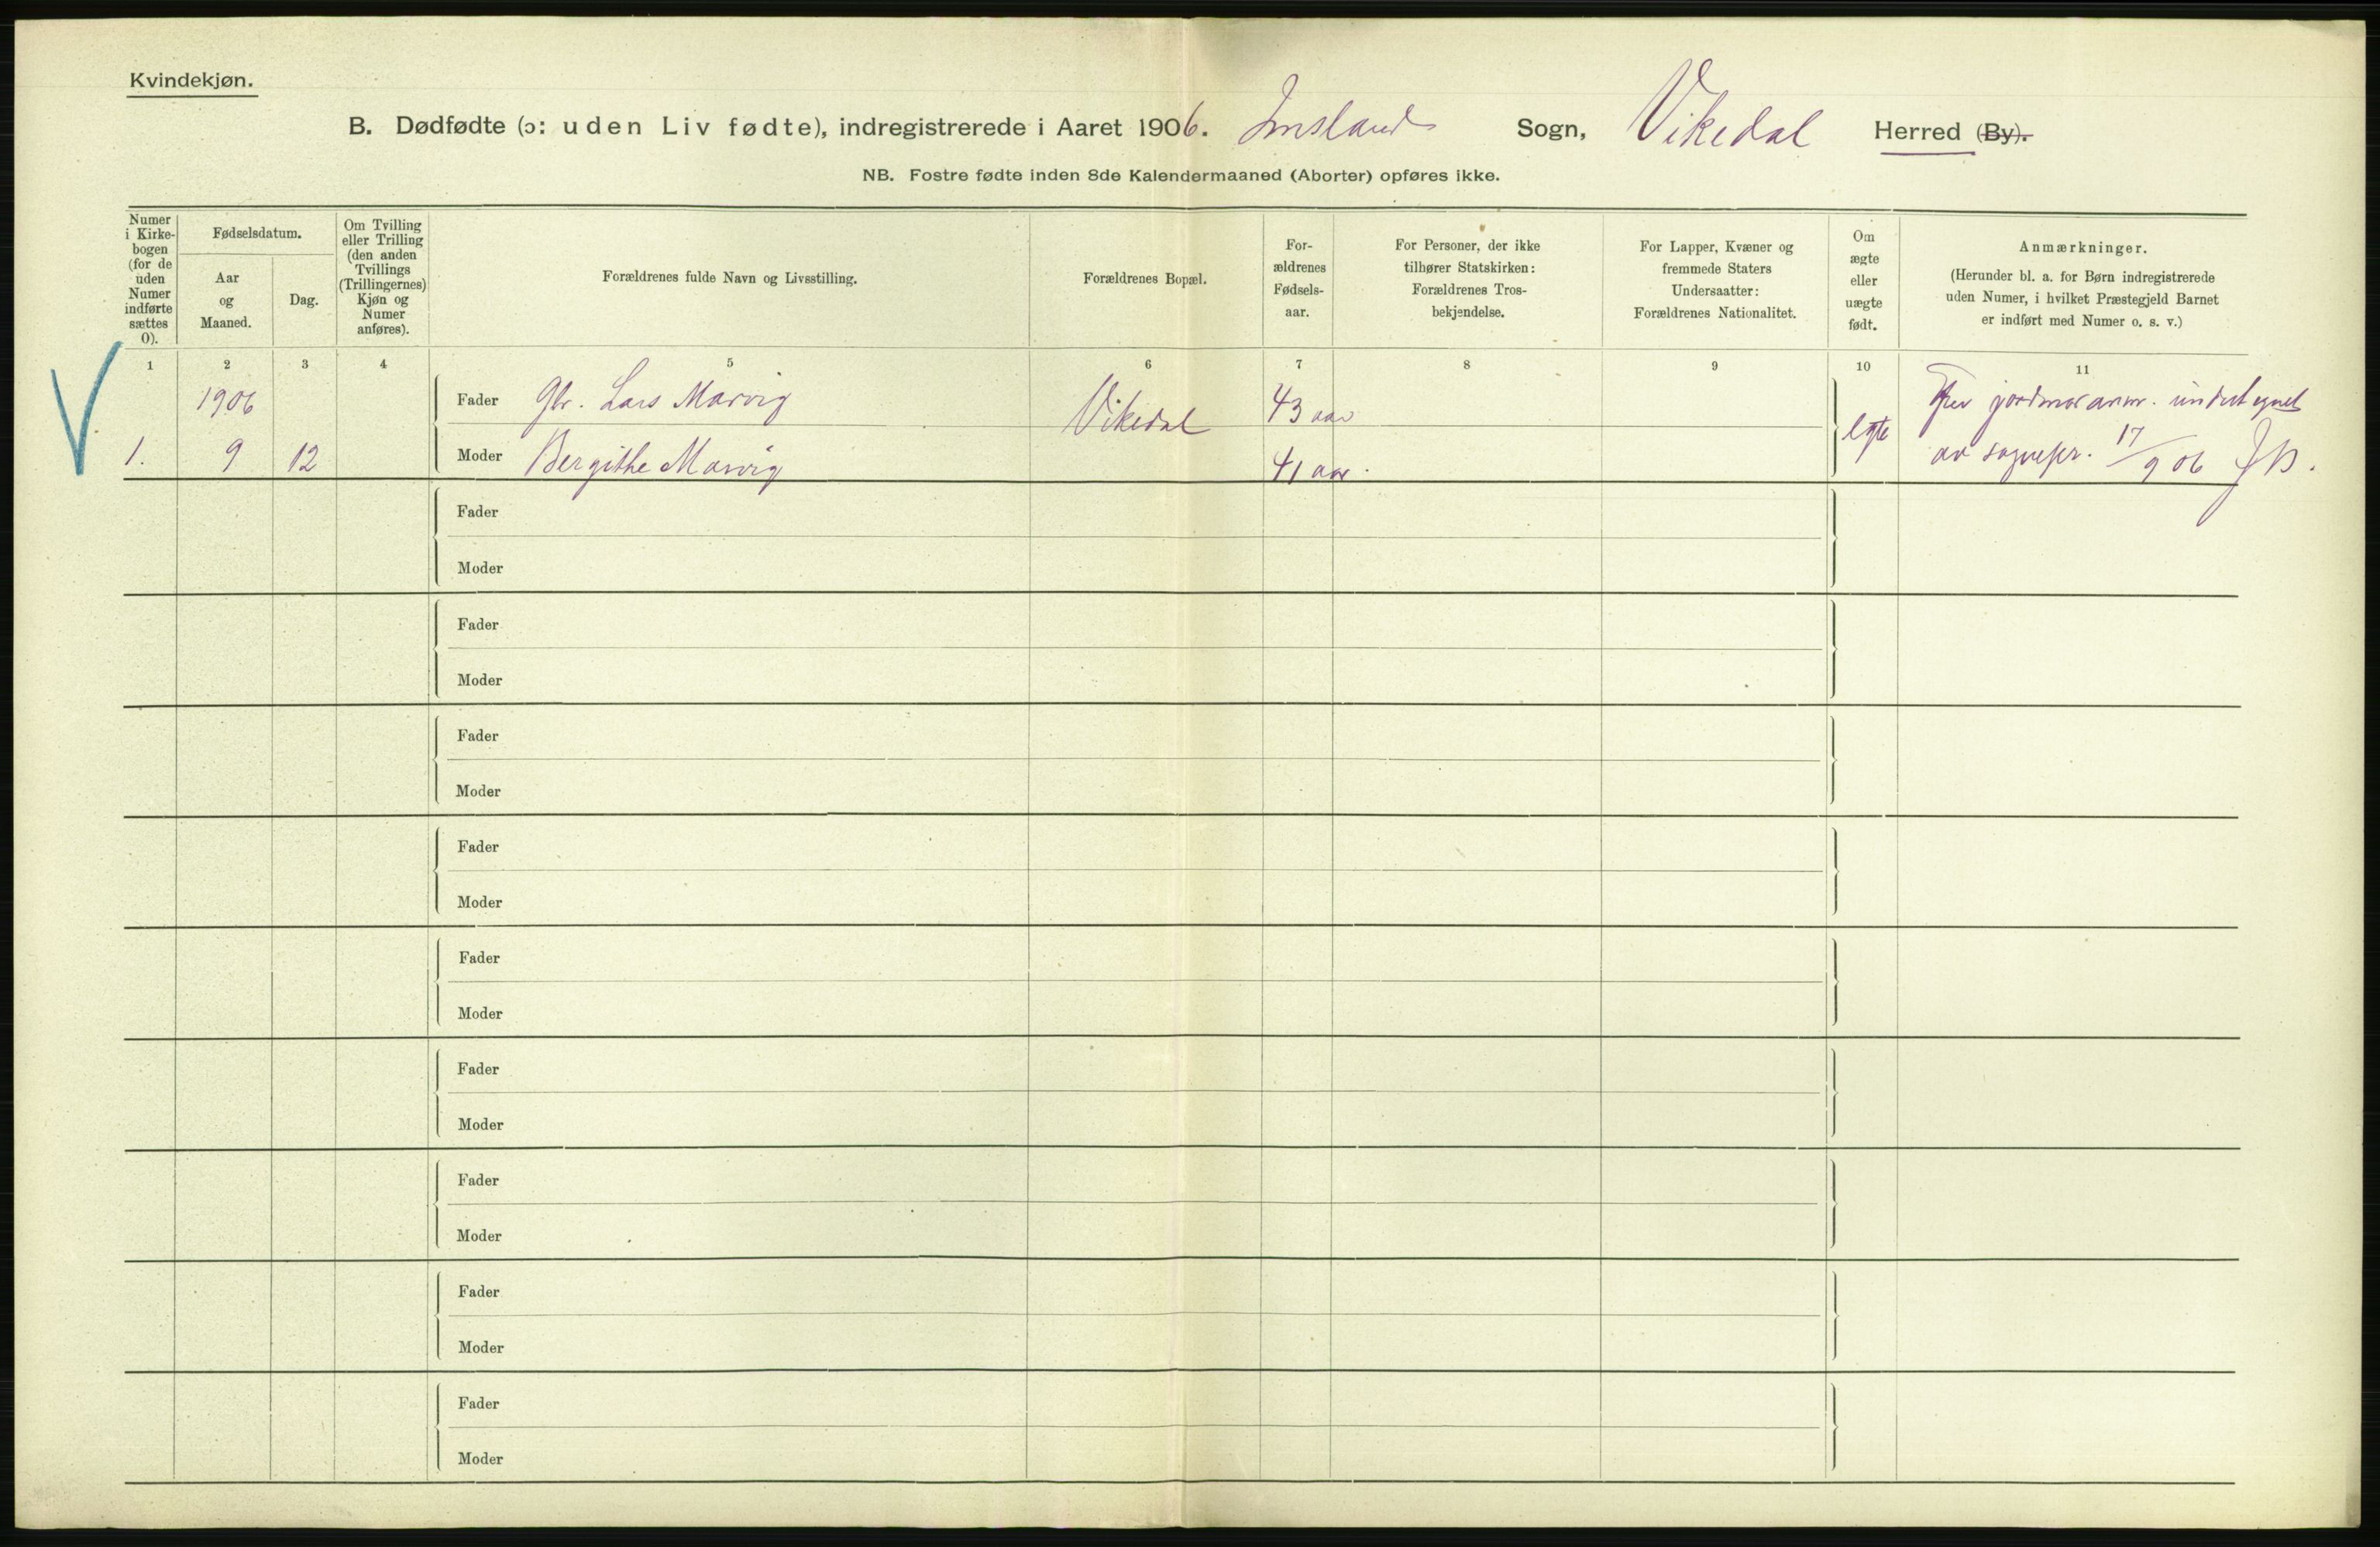 Kvindekjøn.
B. Dødfødte (ɔ: uden Liv fødte), indregistrerede i Aaret 1906. Imsland Sogn, Vikedal Herred (By).
NB. Fostre fødte inden 8de Kalendermaaned (Aborter) opføres ikke.
Numer
i Kirke-
bogen
(for de
uden
Numer
indførte
sættes
0).
Fødselsdatum.
Aar
og
Maaned.
Dag.
Om Tvilling
eller Trilling
(den anden
Tvillings
(Trillingernes)
Kjøn og
Numer
anføres).
Forældrenes fulde Navn og Livsstilling.
Forældrenes Bopæl.
For-
ældrenes
Fødsels-
aar.
For Personer, der ikke
tilhører Statskirken:
Forældrenes Tros-
bekjendelse.
For Lapper, Kvæner og
fremmede Staters
Undersaatter:
Forældrenes Nationalitet.
Om
ægte
eller
uægte
født.
Anmærkninger.
(Herunder bl. a. for Børn indregistrerede
uden Numer, i hvilket Præstegjeld Barnet
er indført med Numer o. s. v.)
1 2 3 4 5 6 7 8 9 10 11
1906 Fader Gbr. Lars Marvig Vikedal 43 aar
1. 9 12 Moder Bergithe Marvig 41 aar. egte
jordmoranm. undertegnet
av sognepr. 17/9 06
Fader
Moder
Fader
Moder
Fader
Moder
Fader
Moder
Fader
Moder
Fader
Moder
Fader
Moder
Fader
Moder
Fader
Moder